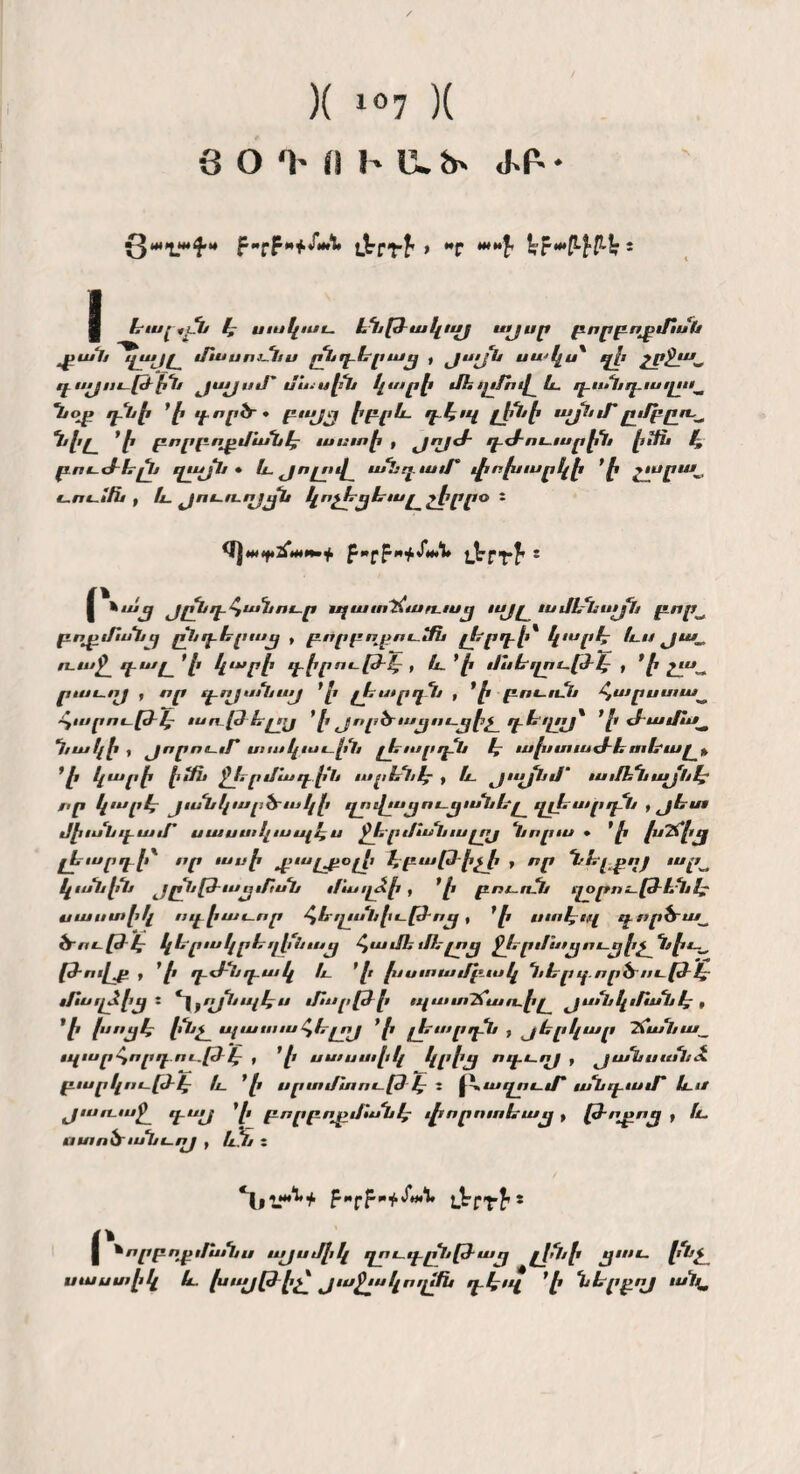 )( 107 )(
ՅՕԴՈՒԱԾ ԺԲ.
Յաղագս բորբոքման լերդի, որ ասի
լեարդն է սակաւ ենթակայ այսր բորբոքման
քան զայլ մասունս ընդերաց, յայն սակս՝ զի շրջա֊
գայութիւն յայսմ մնասին կարի մեղմով և դանդաղա֊
նօք դնի 'ի գործ. բայց իբրև դէպ լինի այնմ ըմբըռ֊
նիլ 'ի բորբոքմանէ աստի, յոյժ դժուարին իմն է
բուժելն զայն. և յոլով անգամ փոխարկի 'ի շարա֊
ւումն, և յուռոյցն կոչեցեալ շիրրօ :
Պատճառք բորբոքման լերդի :
Բաց յընդհանուր պատճառաց այլ ամենայն բոր֊
բոքմանց ընդերաց, բորբոքումն լերդի՝ կարէ ևս յա֊
ռաջ գալ 'ի կարի գիրութէ, և 'ի մսեղութէ, 'ի չա֊
րաւոյ, որ գոյանայ 'ի լեարդն, 'ի բուռն հարստա֊
հարութէ առթելոյ 'ի յործացուցիչ դեղոյ՝ 'ի ժամա֊
նակի, յորում տակաւին լեարդն է ախտաժետեալ,
'ի կարի իմն ջերմագին արևնէ, և յայնմ ամենայնէ
որ կարէ յանկարծակի զովացուցանել զլեարդն, յետ
միանգամ սաստկապէս ջերմանալոյ նորա. 'ի խճից
լեարդի՝ որ ասի քալքօլի էբաթիչի, որ նելքոյ ար֊
կանին յընթացման մաղձի, 'ի բուռն զօրութենէ
սաստիկ ոգիաւոր հեղանիւթոց, 'ի ստէպ գործա֊
ծութէ կերակրեղինաց համեմելոց ջերմացուցիչ նիւ֊
թովք, 'ի դժնդակ և 'ի խստամբակ ներգործութէ
մաղձից : Նոյնպէս մարթի պատճառիլ յանկմանէ,
'ի խոցէ ինչ պատահելոյ 'ի լեարդն, յերկար ճանա֊
պարհորդութէ, 'ի սաստիկ կրից ոգւոյ, յանսանձ
բարկութէ և 'ի սրտմտութէ : Բազում անգամ ևս
յառաջ գայ 'ի բորբոքմանէ փորոտեաց, թոքոց, և
ստոծանւոյ, ևն :
Նշանք բորբոքման լերդի :
Բորբոքմանս այսմիկ զուգընթաց լինի ցաւ ինչ
սաստիկ և խայթիչ՝ յաջակողմն դէպ՝ 'ի ներքոյ ան֊